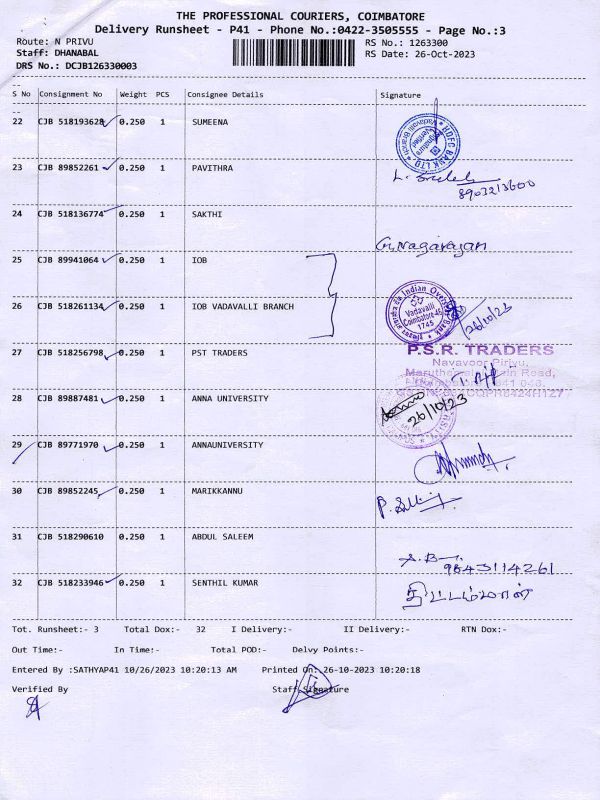 THE PROFESSIONAL COURIERS, COIMBATORE
Delivery Runsheet - P41 - Phone No.:0422-3505555 - Page No.:3
Route: N PRIVU RS No.: 1263300
Staff: DHANABAL RS Date: 26-Oct-2023
DRS No.: DCJB126330003
S No Consignment No Weight PCS Consignee Details Signature
22 CJB 518193628 0.250 1 SUMEENA
HDFC BANK LTD
Signature Verified
Vadavalli Branch
23 CJB 89852261 0.250 1 PAVITHRA
8903213600
24 CJB 518136774 0.250 1 SAKTHI
G. Nagarajan
25 CJB 89941064 0.250 1 IOB
26 CJB 518261134 0.250 1 IOB VADAVALLI BRANCH
Indian Overseas Bank
Vadavalli
Coimbatore-45
1745
26/10/23
27 CJB 518256798 0.250 1 PST TRADERS
P.S.R. TRADERS
Navavoor Pirivu,
Maruthamalai Main Road,
28 CJB 89887481 0.250 1 ANNA UNIVERSITY
26/10/23
29 CJB 89771970 0.250 1 ANNAUNIVERSITY
30 CJB 89852245 0.250 1 MARIKKANNU
31 CJB 518290610 0.250 1 ABDUL SALEEM
9843114261
32 CJB 518233946 0.250 1 SENTHIL KUMAR
Tot. Runsheet:- 3 Total Dox:- 32 I Delivery:- II Delivery:- RTN Dox:-
Out Time:- In Time:- Total POD:- Delvy Points:-
Entered By :SATHYAP41 10/26/2023 10:20:13 AM Printed On: 26-10-2023 10:20:18
Verified By Staff Signature